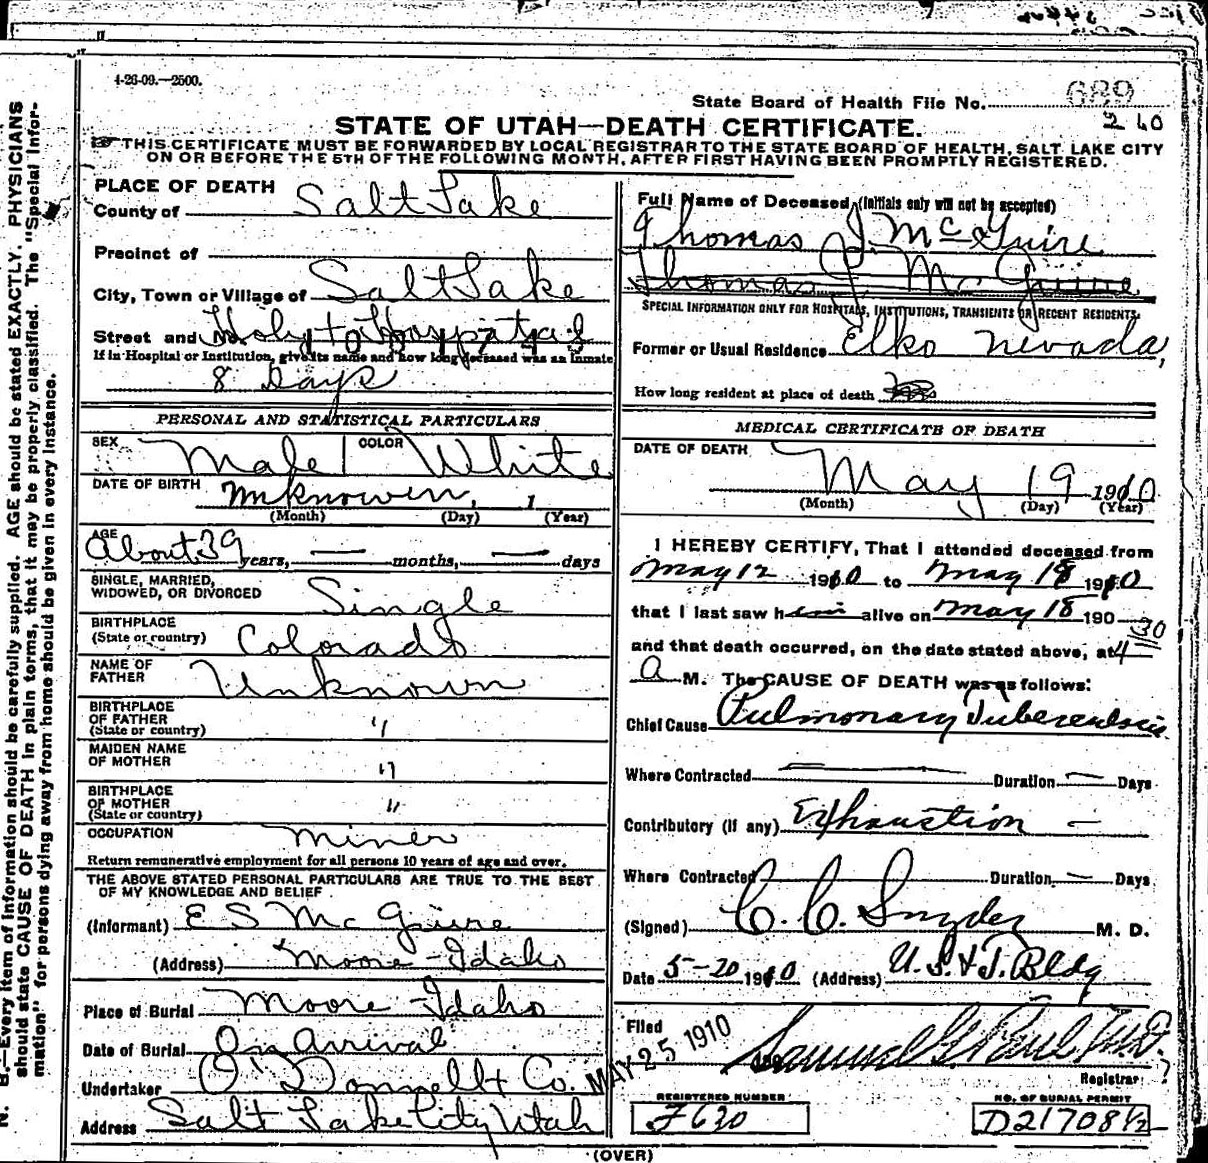 4-26-09.—2500.
State Board of Health File No. 689
260
STATE OF UTAH—DEATH CERTIFICATE.
THIS CERTIFICATE MUST BE FORWARDED BY LOCAL REGISTRAR TO THE STATE BOARD OF HEALTH, SALT LAKE CITY
ON OR BEFORE THE 5TH OF THE FOLLOWING MONTH, AFTER FIRST HAVING BEEN PROMPTLY REGISTERED.
N. B.—Every item of information should be carefully supplied. AGE should be stated EXACTLY. PHYSICIANS
should state CAUSE OF DEATH in plain terms, that it may be properly classified. The "Special Infor-
mation" for persons dying away from home should be given in every instance.
PLACE OF DEATH
County of Salt Lake
Precinct of
City, Town or Village of Salt Lake
Street and No. Holy + Hospital
If in Hospital or Institution, give its name and how long deceased was an inmate
8 Days
PERSONAL AND STATISTICAL PARTICULARS
SEX Male COLOR White
DATE OF BIRTH Unknowen, 1
(Month) (Day) (Year)
AGE About 39 years, — months, — days
SINGLE, MARRIED,
WIDOWED, OR DIVORCED Single
BIRTHPLACE
(State or country) Colorado
NAME OF
FATHER Unknown
BIRTHPLACE
OF FATHER
(State or country) "
MAIDEN NAME
OF MOTHER "
BIRTHPLACE
OF MOTHER
(State or country) "
OCCUPATION Miner
Return remunerative employment for all persons 10 years of age and over.
THE ABOVE STATED PERSONAL PARTICULARS ARE TRUE TO THE BEST
OF MY KNOWLEDGE AND BELIEF
(Informant) E S McGuire
(Address) Moore - Idaho
Place of Burial Moore - Idaho
Date of Burial On Arrival
Undertaker O'Donnell & Co.
Address Salt Lake City Utah
Full Name of Deceased (Initials only will not be accepted)
Thomas J. McGuire
Thomas J. McGuire
SPECIAL INFORMATION ONLY FOR HOSPITALS, INSTITUTIONS, TRANSIENTS OR RECENT RESIDENTS.
Former or Usual Residence Elko Nevada,
How long resident at place of death
MEDICAL CERTIFICATE OF DEATH
DATE OF DEATH
May 19 1910
(Month) (Day) (Year)
I HEREBY CERTIFY, That I attended deceased from
May 12 1910 to May 18 1910
that I last saw him alive on May 18 190
and that death occurred, on the date stated above, at 4 30
A M. The CAUSE OF DEATH was as follows:
Chief Cause Pulmonary Tuberculosis
Where Contracted — Duration — Days
Contributory (if any) Exhaustion —
Where Contracted Duration — Days
(Signed) C. C. Snyder M. D.
Date 5-20 1910 (Address) U. S. & T. Bldg
Filed MAY 25 1910 190 Samuel G. Paul M.D.
Registrar
REGISTERED NUMBER
F 630
NO. OF BURIAL PERMIT
D21708½
(OVER)